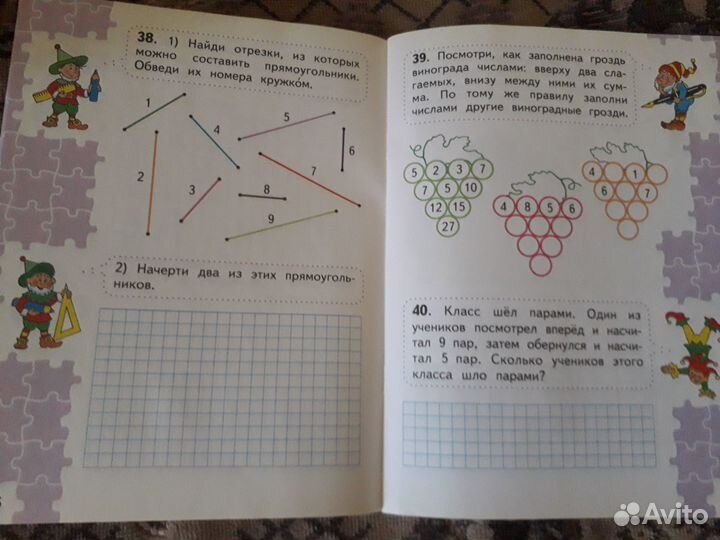 38. 1) Найди отрезки, из которых
можно составить прямоугольники.
Обведи их номера кружком.
1
4
5
6
2
3
8
7
9
2) Начерти два из этих прямоуголь-
ников.
39. Посмотри, как заполнена гроздь
винограда числами: вверху два сла-
гаемых, внизу между ними их сум-
ма. По тому же правилу заполни
числами другие виноградные грозди.
5 2 3 7
7 5 10
12 15
27
4 8 5 6
4 1
6 7
40. Класс шёл парами. Один из
учеников посмотрел вперёд и насчи-
тал 9 пар, затем обернулся и насчи-
тал 5 пар. Сколько учеников этого
класса шло парами?
Avito